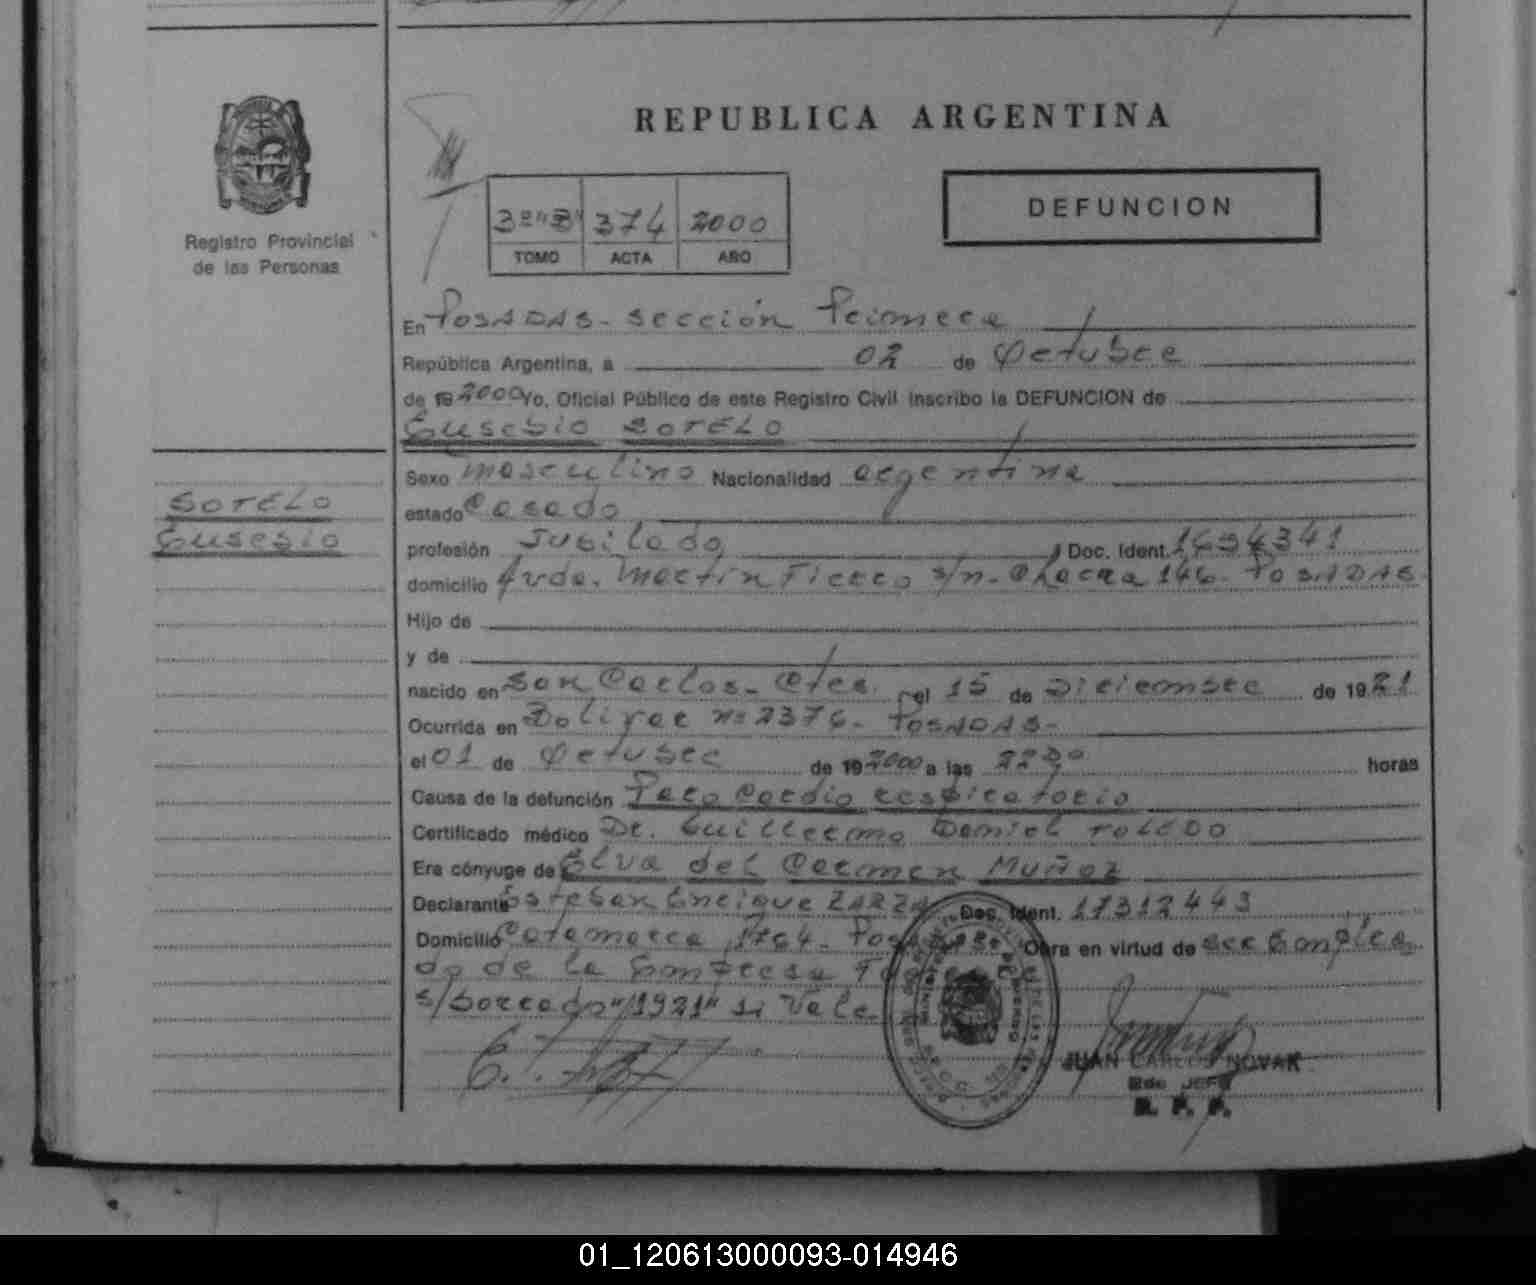 REPUBLICA ARGENTINA
Registro Provincial
de las Personas
3º "B" 374 2000
TOMO ACTA AÑO
DEFUNCION
En POSADAS - Sección Primera
República Argentina, a 02 de Octubre
de 19 2000 Yo, Oficial Público de este Registro Civil inscribo la DEFUNCION de
Eusebio SOTELO
SOTELO
Eusebio
Sexo masculino Nacionalidad argentina
estado Casado
profesión Jubilado Doc. Ident. 1694341
domicilio Avda. Martín Fierro s/n. Chacra 146. POSADAS
Hijo de
y de
nacido en San Carlos - Ctes. el 15 de Diciembre de 1921
Ocurrida en Bolivar nº 2376 - POSADAS -
el 01 de Octubre de 19 2000 a las 22:30 horas
Causa de la defunción Paro Cardio respiratorio
Certificado médico Dr. Guillermo Daniel TOLEDO
Era cónyuge de Elva del Carmen MUÑOZ
Declarante Esteban Enrique ZARZA Doc. Ident. 17312443
Domicilio Catamarca 1764 - Obra en virtud de ser Emplea
do de la Empresa
s/borrado "1921" si Vale.
JUAN CARLOS NOVAK
2do JEFE
R. P. P.
01_120613000093-014946